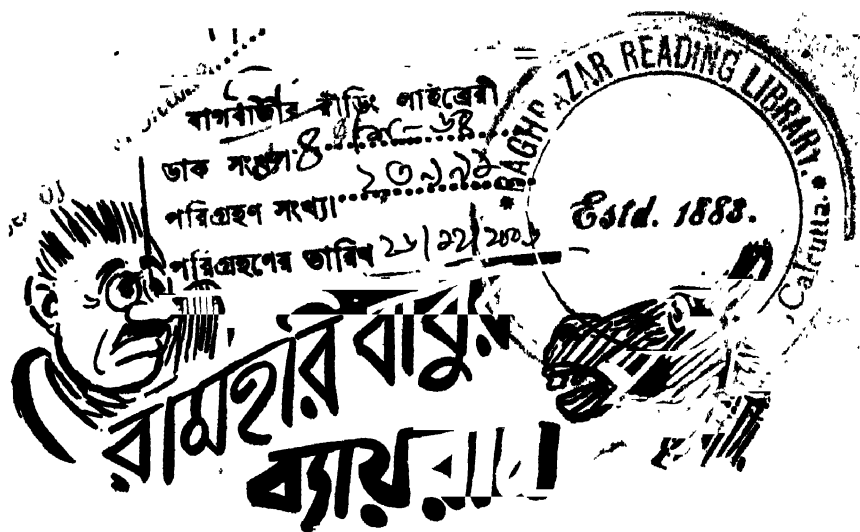 বাগবাজার রীডিং লাইব্রেরী
ডাক সংখ্যা
পরিগ্রহণ সংখ্যা
পরিগ্রহণের তারিখ
BAGHBAZAR READING LIBRARY.
Estd. 1883.
Calcutta.
রামহরি বাবুর
ব্যায়রাম